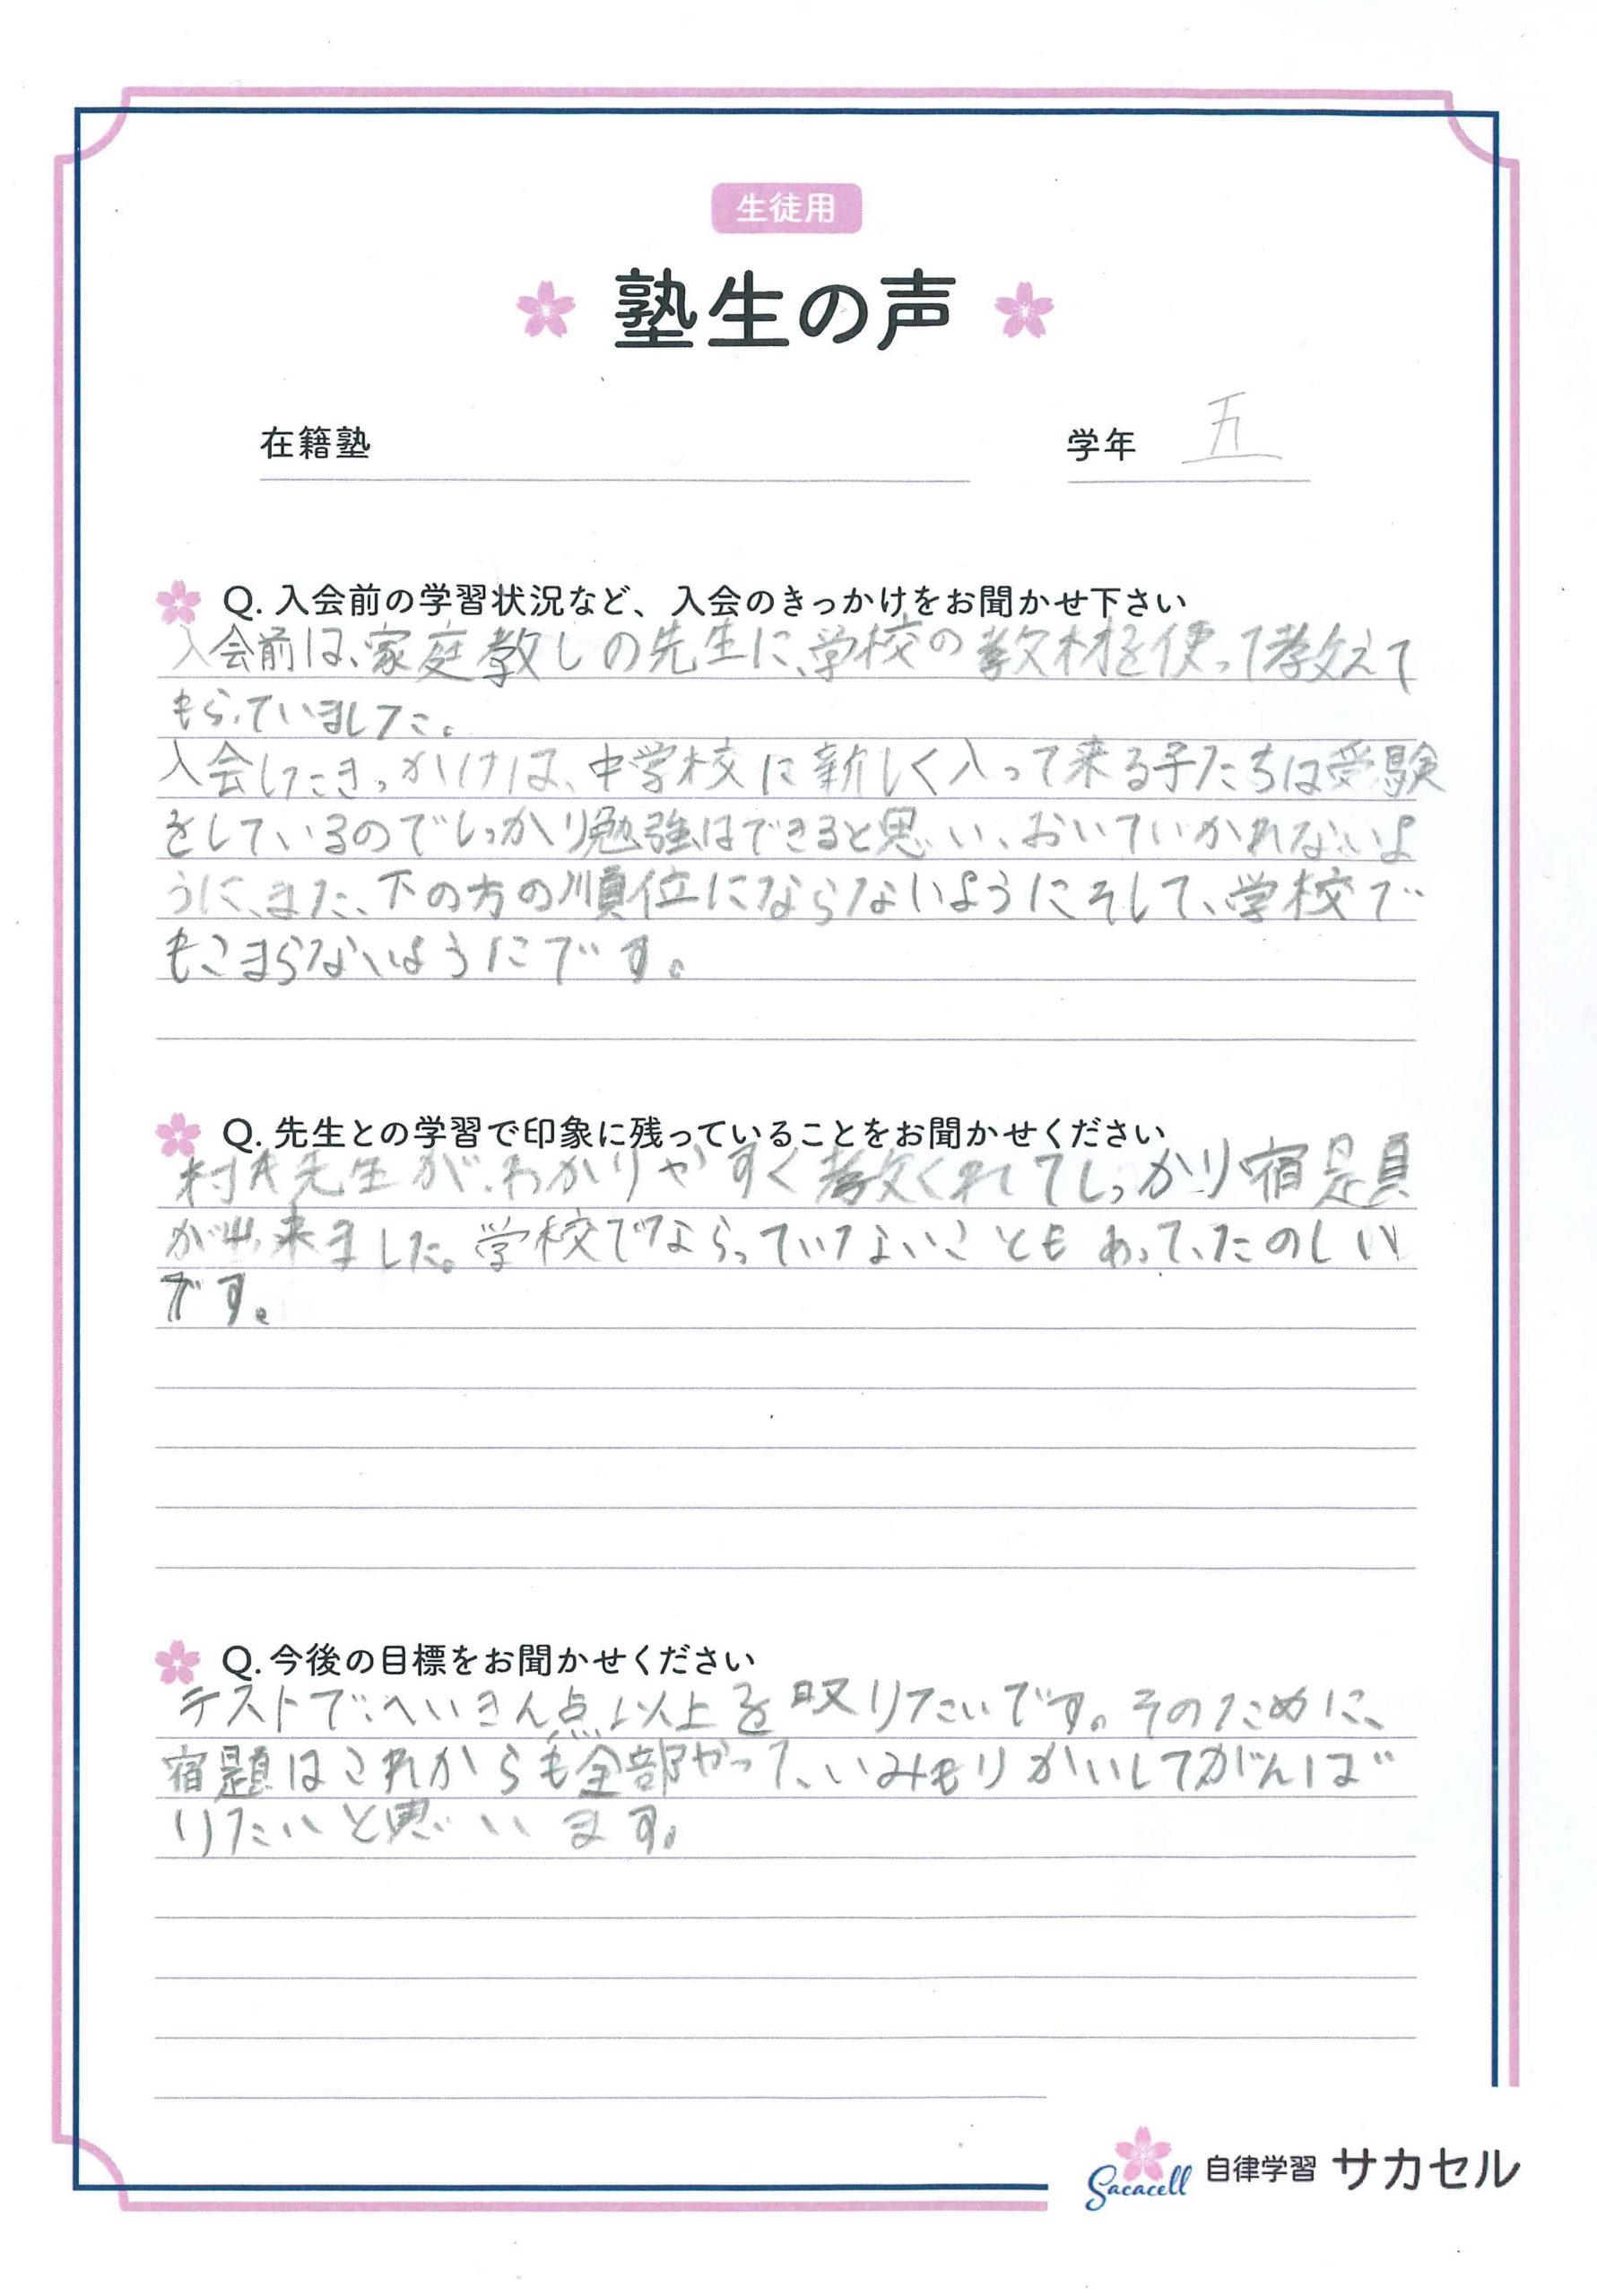 生徒用
塾生の声
在籍塾
学年 五
Q. 入会前の学習状況など、入会のきっかけをお聞かせ下さい
入会前は、家庭教しの先生に、学校の教材を使って教えて
もらっていました。
入会したきっかけは、中学校に新しく入って来る子たちは受験
をしているのでしっかり勉強はできると思い、おいていかれないよ
うに、また、下の方の順位にならないようにそして、学校で
もこまらないようにです。
Q. 先生との学習で印象に残っていることをお聞かせください
先生が、わかりやすく教くれてしっかり宿題
が出来ました。学校でならっていないこともあって、たのしい
です。
Q. 今後の目標をお聞かせください
テストで、へいきん点以上を取りたいです。そのために、
宿題はこれからも全部やって、いみもりかいしてがんば
りたいと思います。
Sacacell 自律学習 サカセル